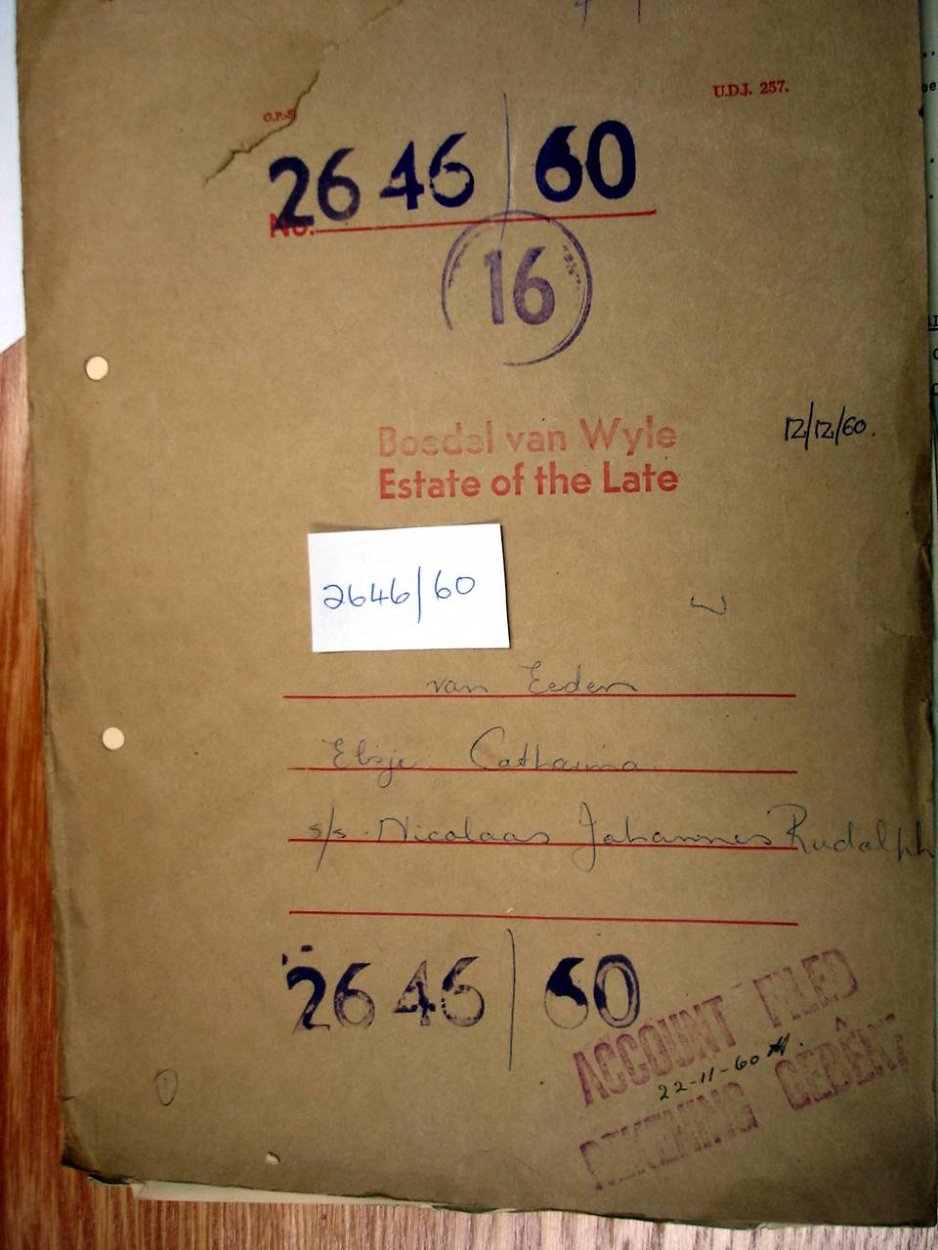 U.D.J. 257.
G.P.-S
2646/60
No.
16
Boedel van Wyle
Estate of the Late
12/12/60.
2646/60
van Eeden
Elsje Catharina
s/s. Nicolaas Johannes Rudolph
2646/60
ACCOUNT FILED
22-11-60
REKENING GEBÊRE